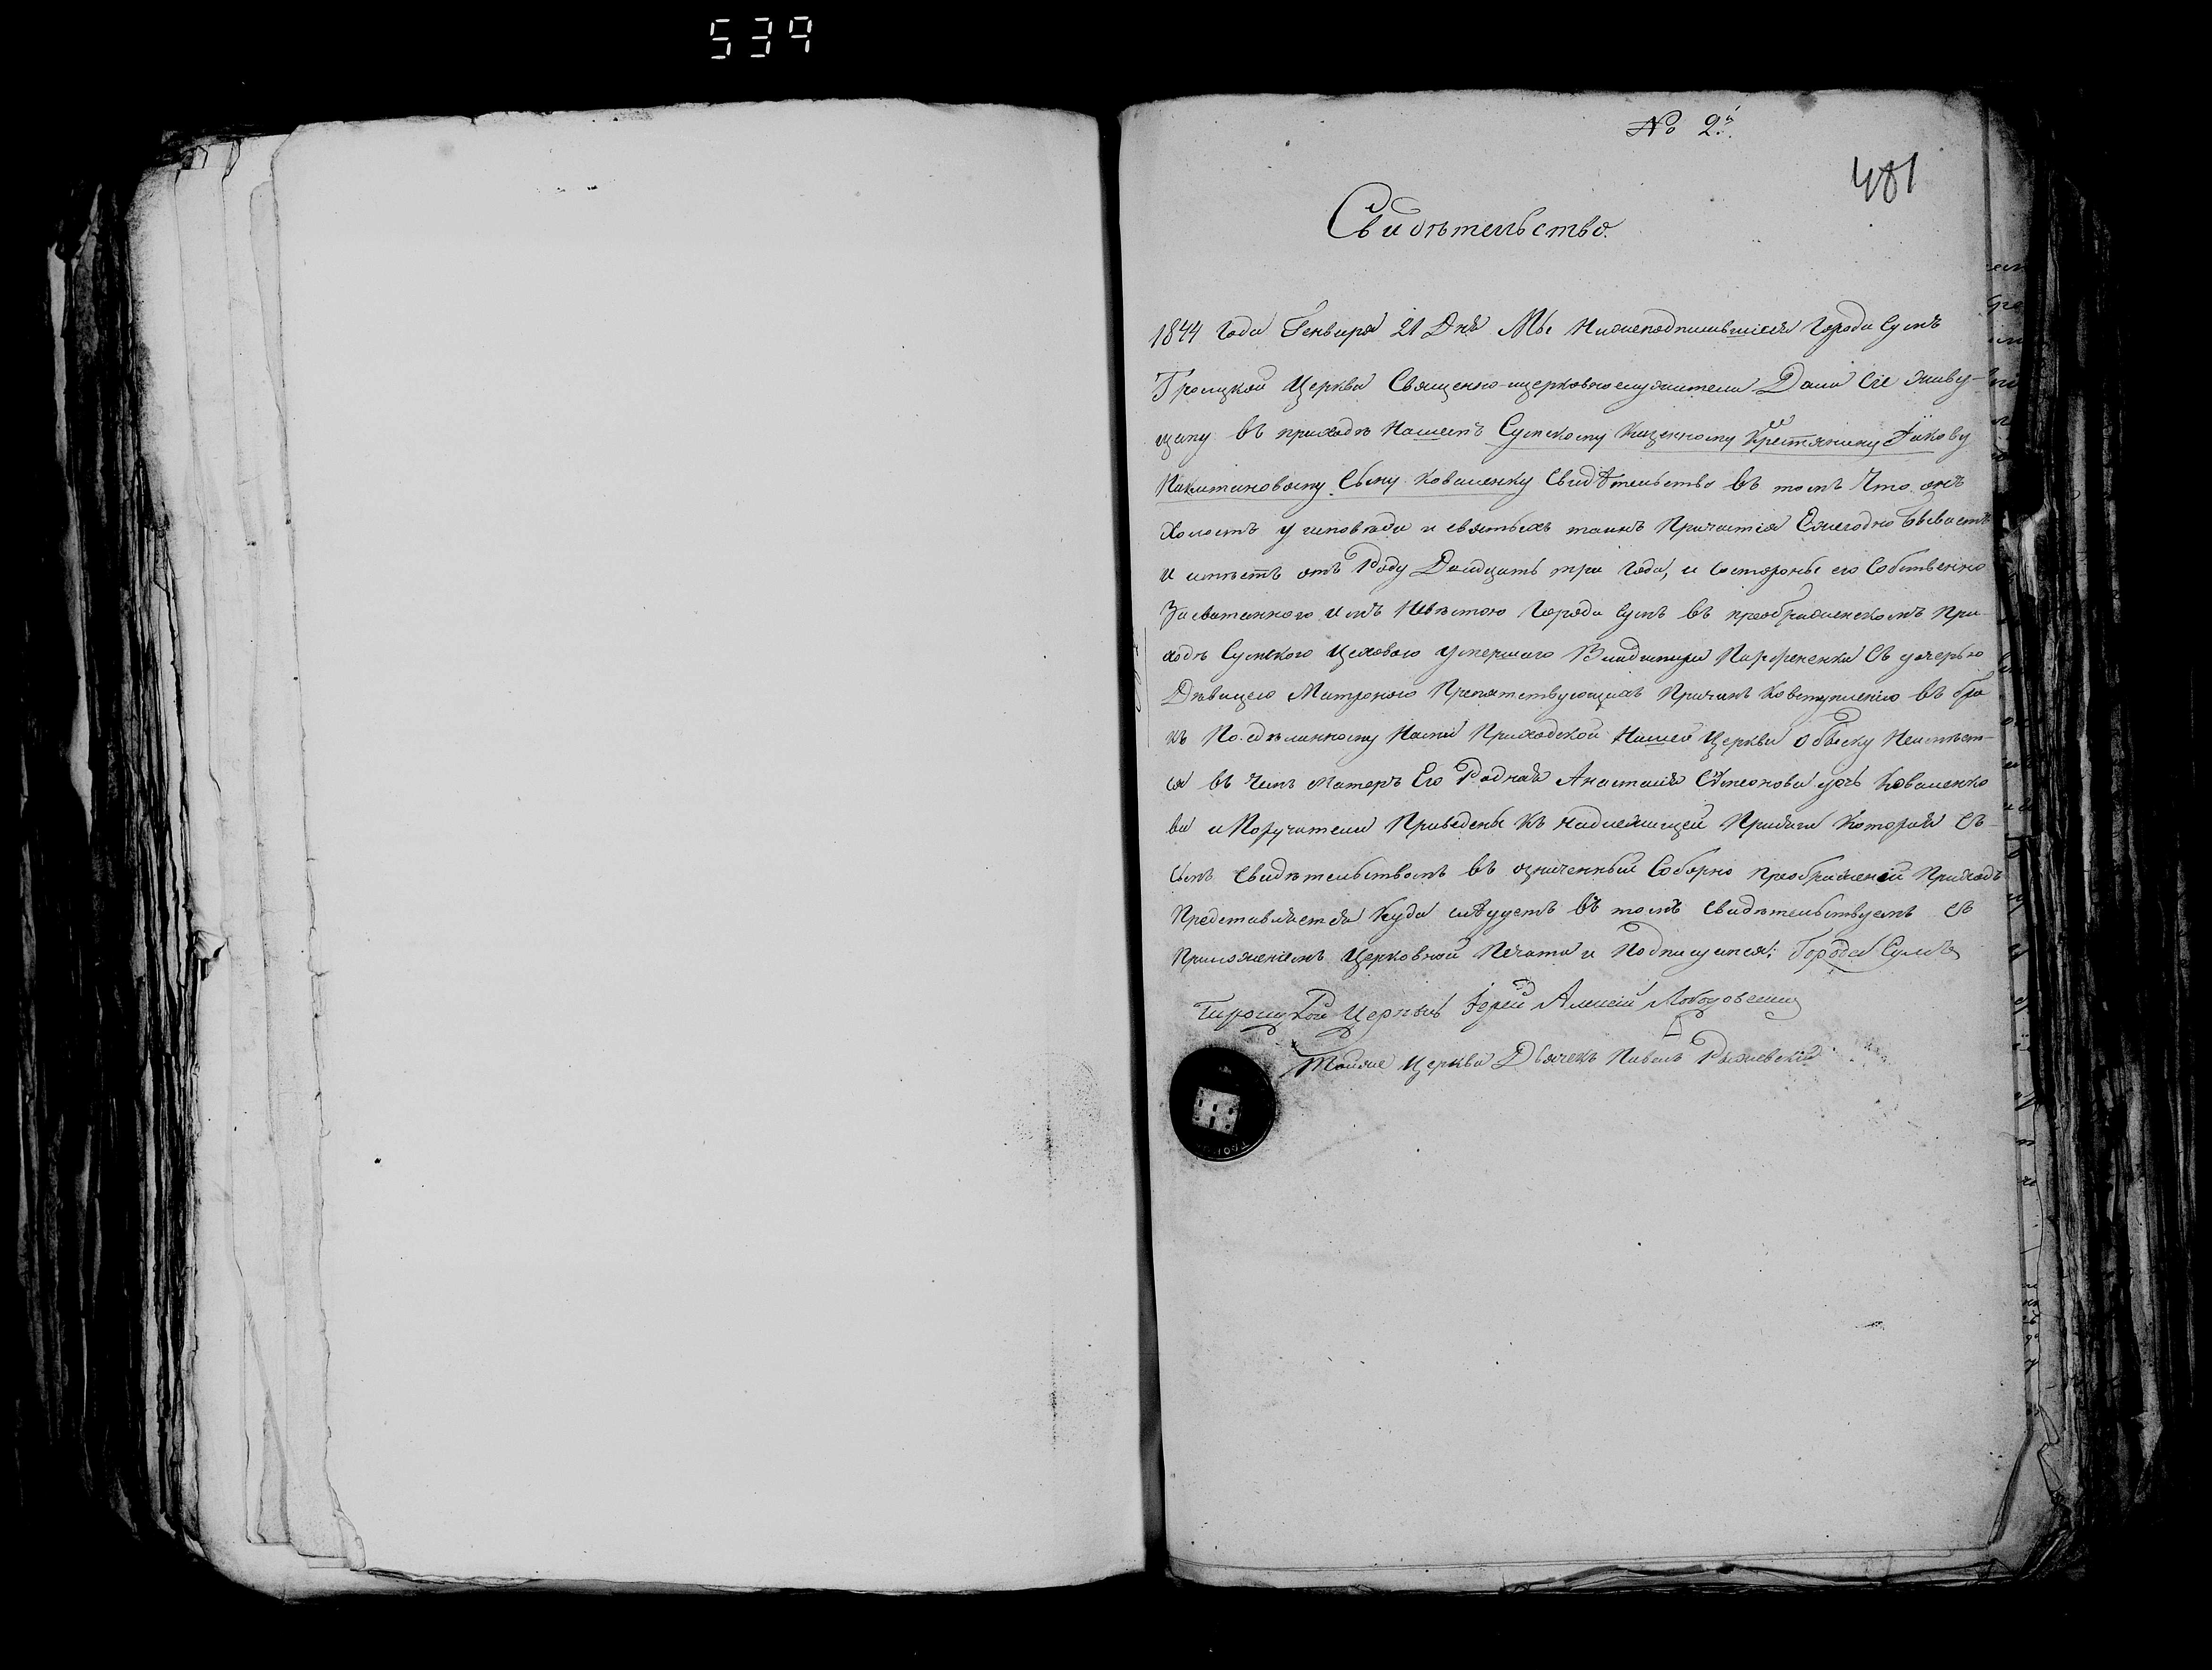 539
№ 2й
481
Свидѣтельство.
1844 Года Генваря 21 Дня Мы Нижеподписавшіеся Города Сумъ
Троицкой Церкви Священно-церковнослужители Дали Сіе живу-
щему въ приходѣ Нашемъ Сумскому Казенному Крестянину Іакову
сыну Коваленку Свидѣтельство въ томъ Что онъ
Холостъ у исповѣди и святыхъ таинъ Причастія Ежегодно бываетъ
и имѣетъ отъ Роду Двадцать три Года, и состороны его Собственно
Засватанного имъ Невѣстою Города Сумъ въ преображенскомъ При
ходѣ Сумского Цеховаго умершаго Владимира Парфененка Съ дочерью
Дѣвицею Матроною Препятствующихъ Причинъ Ковступленію въ бра
къ По сдѣланному Нами Приходской Нашей Церкви обыску Неимѣет-
ся въ чемъ Матерь Его Родная Анастасія Сѵмеонова дочь Коваленко
ва и Поручители Приведены Къ надлежащей Присяги Который Съ
симъ Свидѣтельствомъ въ означенный Соборно преображеній Приходъ
Представляется Куда слѣдуетъ въ томъ Свидѣтельствуемъ Съ
Приложеніемъ Церковной Печати и Подписуемся: Города Сумъ
Троицкой Церквы Іерей Алексій
Тоиже Церкви Дьячекъ Павелъ